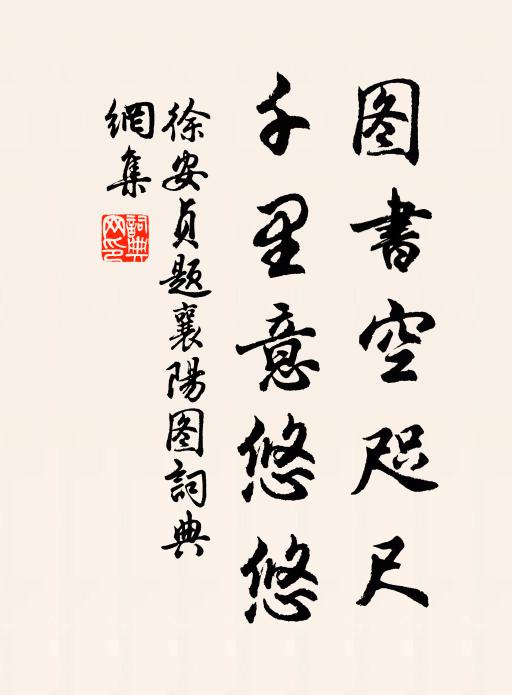 图書空咫尺
千里意悠悠
徐安貞题襄陽图詞典
網集
詞典
网印